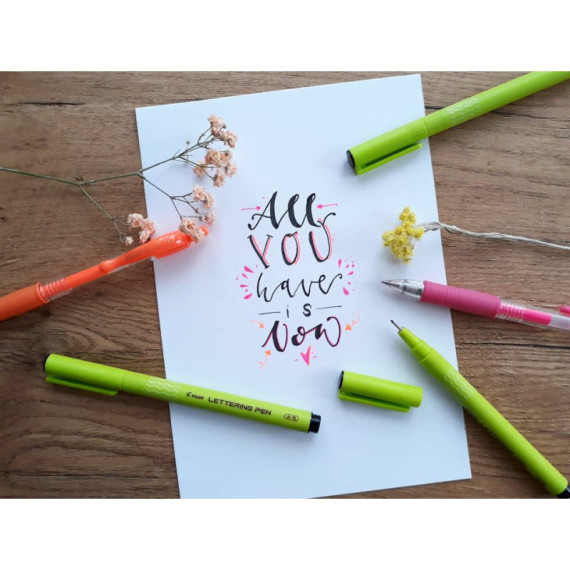 All
YOU
have
is
Now
PILOT LETTERING PEN